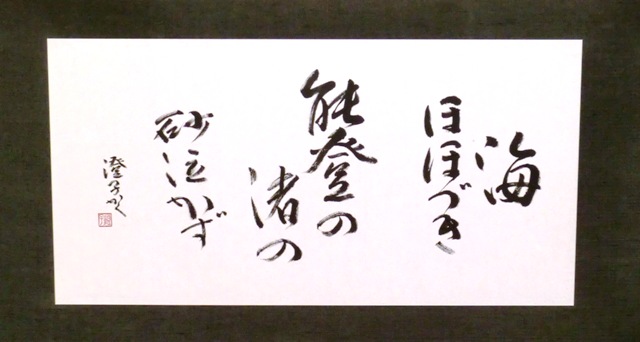 海
ほほづき
能登の
渚の
砂泣かず
澄子かく